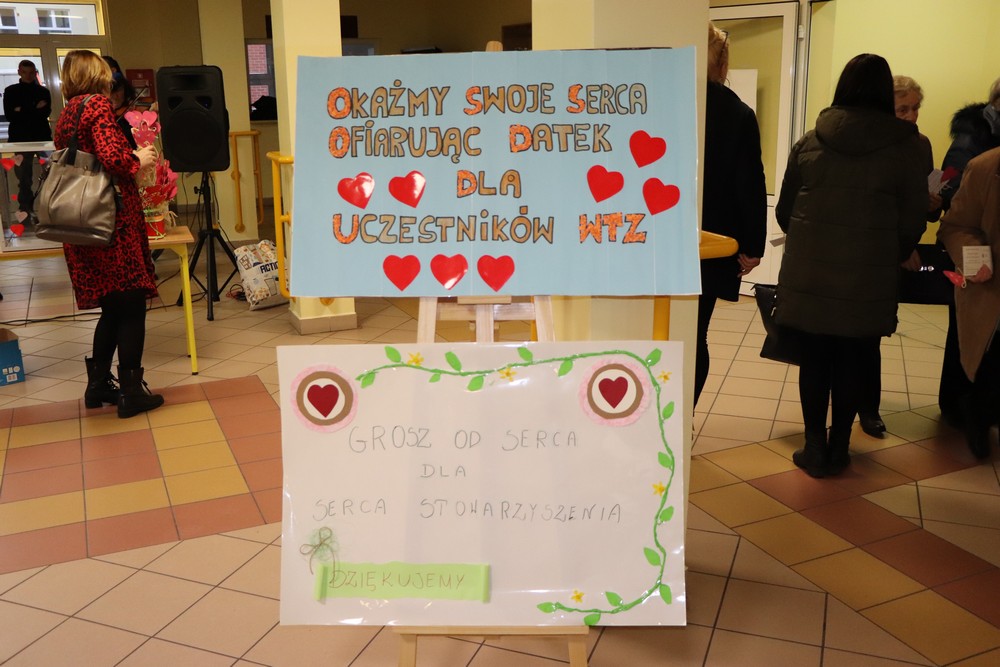 OKAŻMY SWOJE SERCA
OFIARUJĄC DATEK
DLA
UCZESTNIKÓW WTZ
GROSZ OD SERCA
DLA
SERCA STOWARZYSZENIA
DZIĘKUJEMY
ACTION